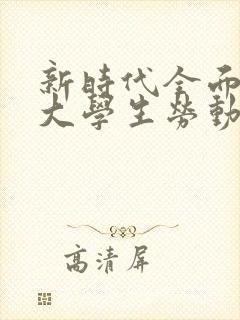 新時代全而
大學生勞動
高清屏